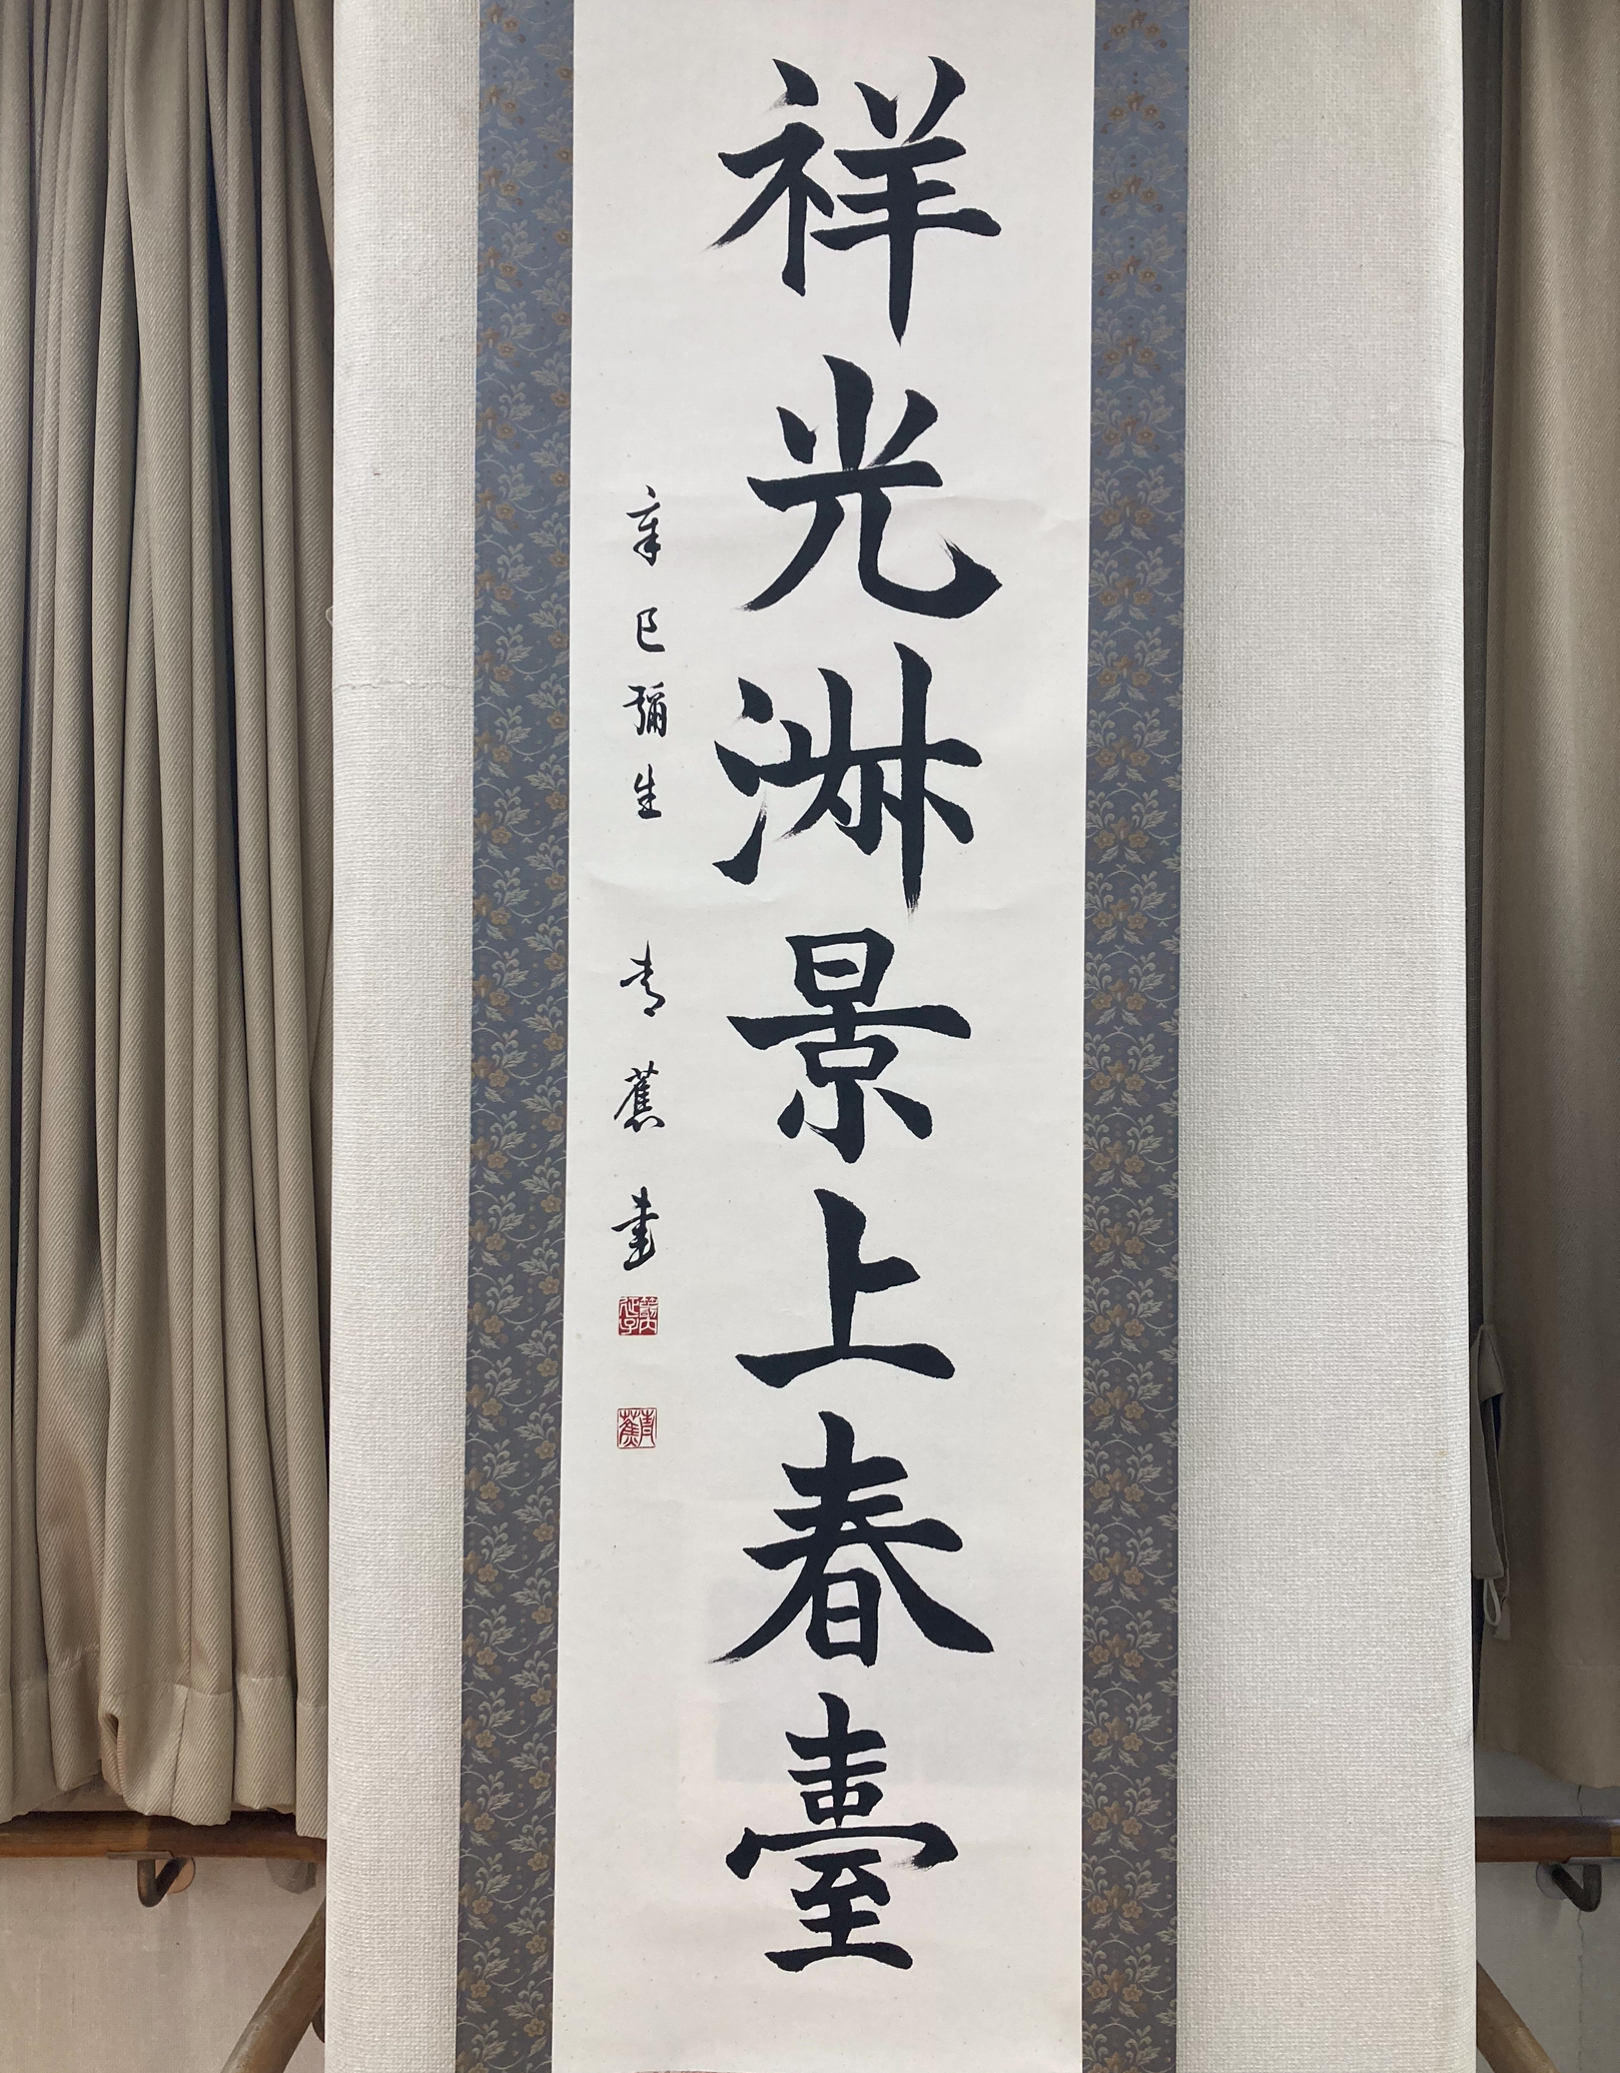 祥光淋景上春臺
辛巳彌生 青蕉書
青蕉